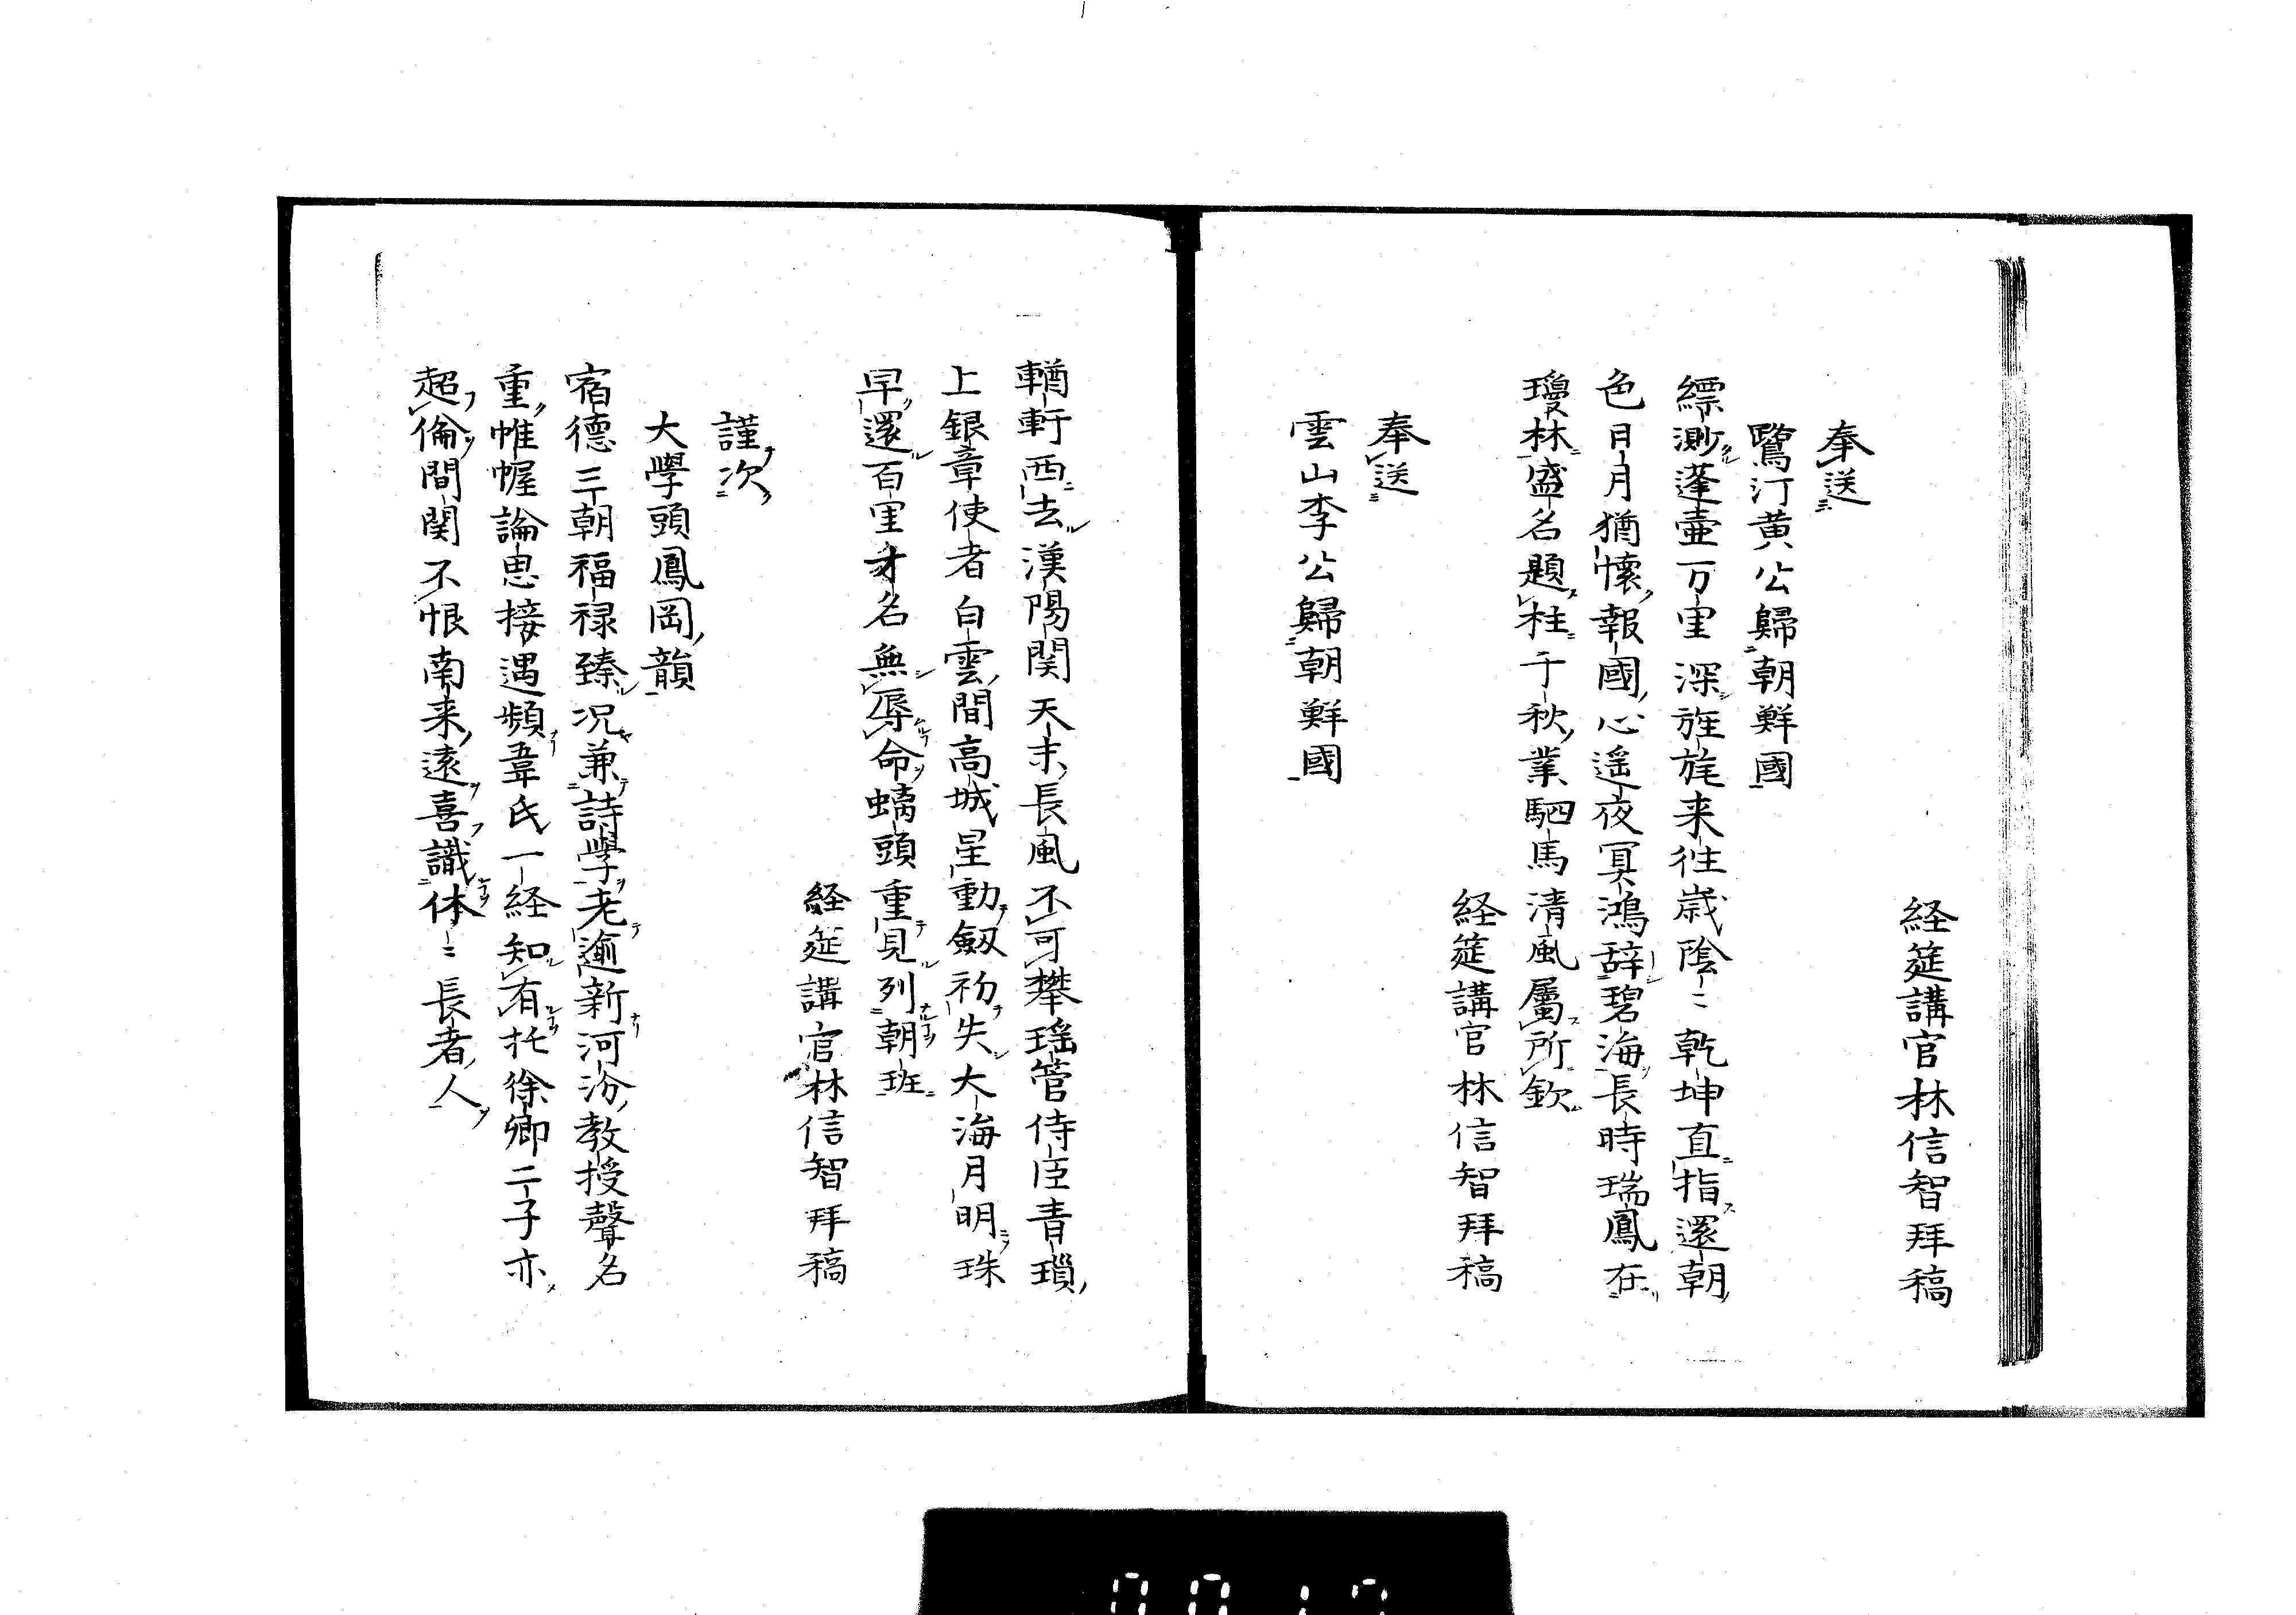 経筵講官林信智拜稿
奉送
鷺汀黄公歸朝鮮國
縹渺蓬壷万里深旌旄来徃歳陰〻乾坤直指還朝
色日月猶懐報國心遥夜冥鴻辞碧海長時瑞鳳在
瓊林盛名題柱千秋業駟馬清風屬所欽
経筵講官林信智拜稿
奉送
雲山李公歸朝鮮國
輶軒西去漢陽関天末長風不可攀瑶管侍臣青瑣
上銀章使者白雲間高城星動劔初失大海月明珠
早還百里才名無辱命螭頭重見列朝班
経筵講官林信智拜稿
謹次
大學頭鳳岡韻
宿德三朝福禄臻况兼詩學老逾新河汾教授聲名
重帷幄論思接遇頻韋氏一経知有托徐卿二子亦
超倫間関不恨南来遠喜識休〻長者人